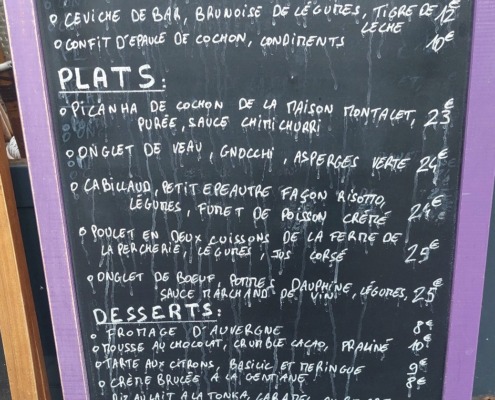 ° CEVICHE DE BAR, BRUNOISE DE LÉGUMES, TIGRE DE LECHE 12€
° CONFIT D'EPAULE DE COCHON, CONDIMENTS 10€
PLATS:
° PICANHA DE COCHON DE LA MAISON MONTALET,
PURÉE, SAUCE CHIMICHURRI 23€
° ONGLET DE VEAU, GNOCCHI, ASPERGES VERTE 24€
° CABILLAUD, PETIT EPEAUTRE FAÇON RISOTTO,
LÉGUMES, FUMET DE POISSON CRÉMÉ 24€
° POULET EN DEUX CUISSONS DE LA FERME DE
LA PERCHERIE, LÉGUMES, JUS CORSÉ 25€
° ONGLET DE BOEUF, POMMES DAUPHINE,
SAUCE MARCHAND DE VIN, LÉGUMES, 25€
DESSERTS:
° FROMAGE D'AUVERGNE 8€
° MOUSSE AU CHOCOLAT, CRUMBLE CACAO, PRALINÉ 10€
° TARTE AUX CITRONS, BASILIC ET MERINGUE 9€
° CRÈME BRULÉE À LA GENTIANE 8€
RIZ AU LAIT A LA TONKA, CARAMEL